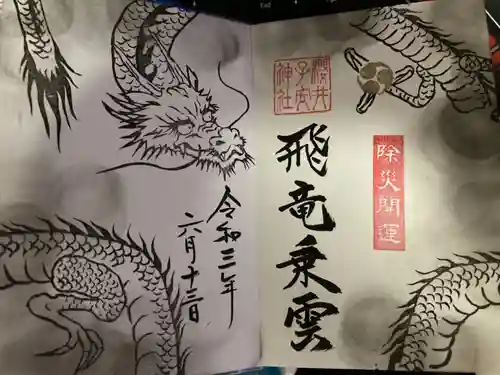 櫻井
子安
神社
除災開運
飛竜乗雲
令和三年
六月十三日